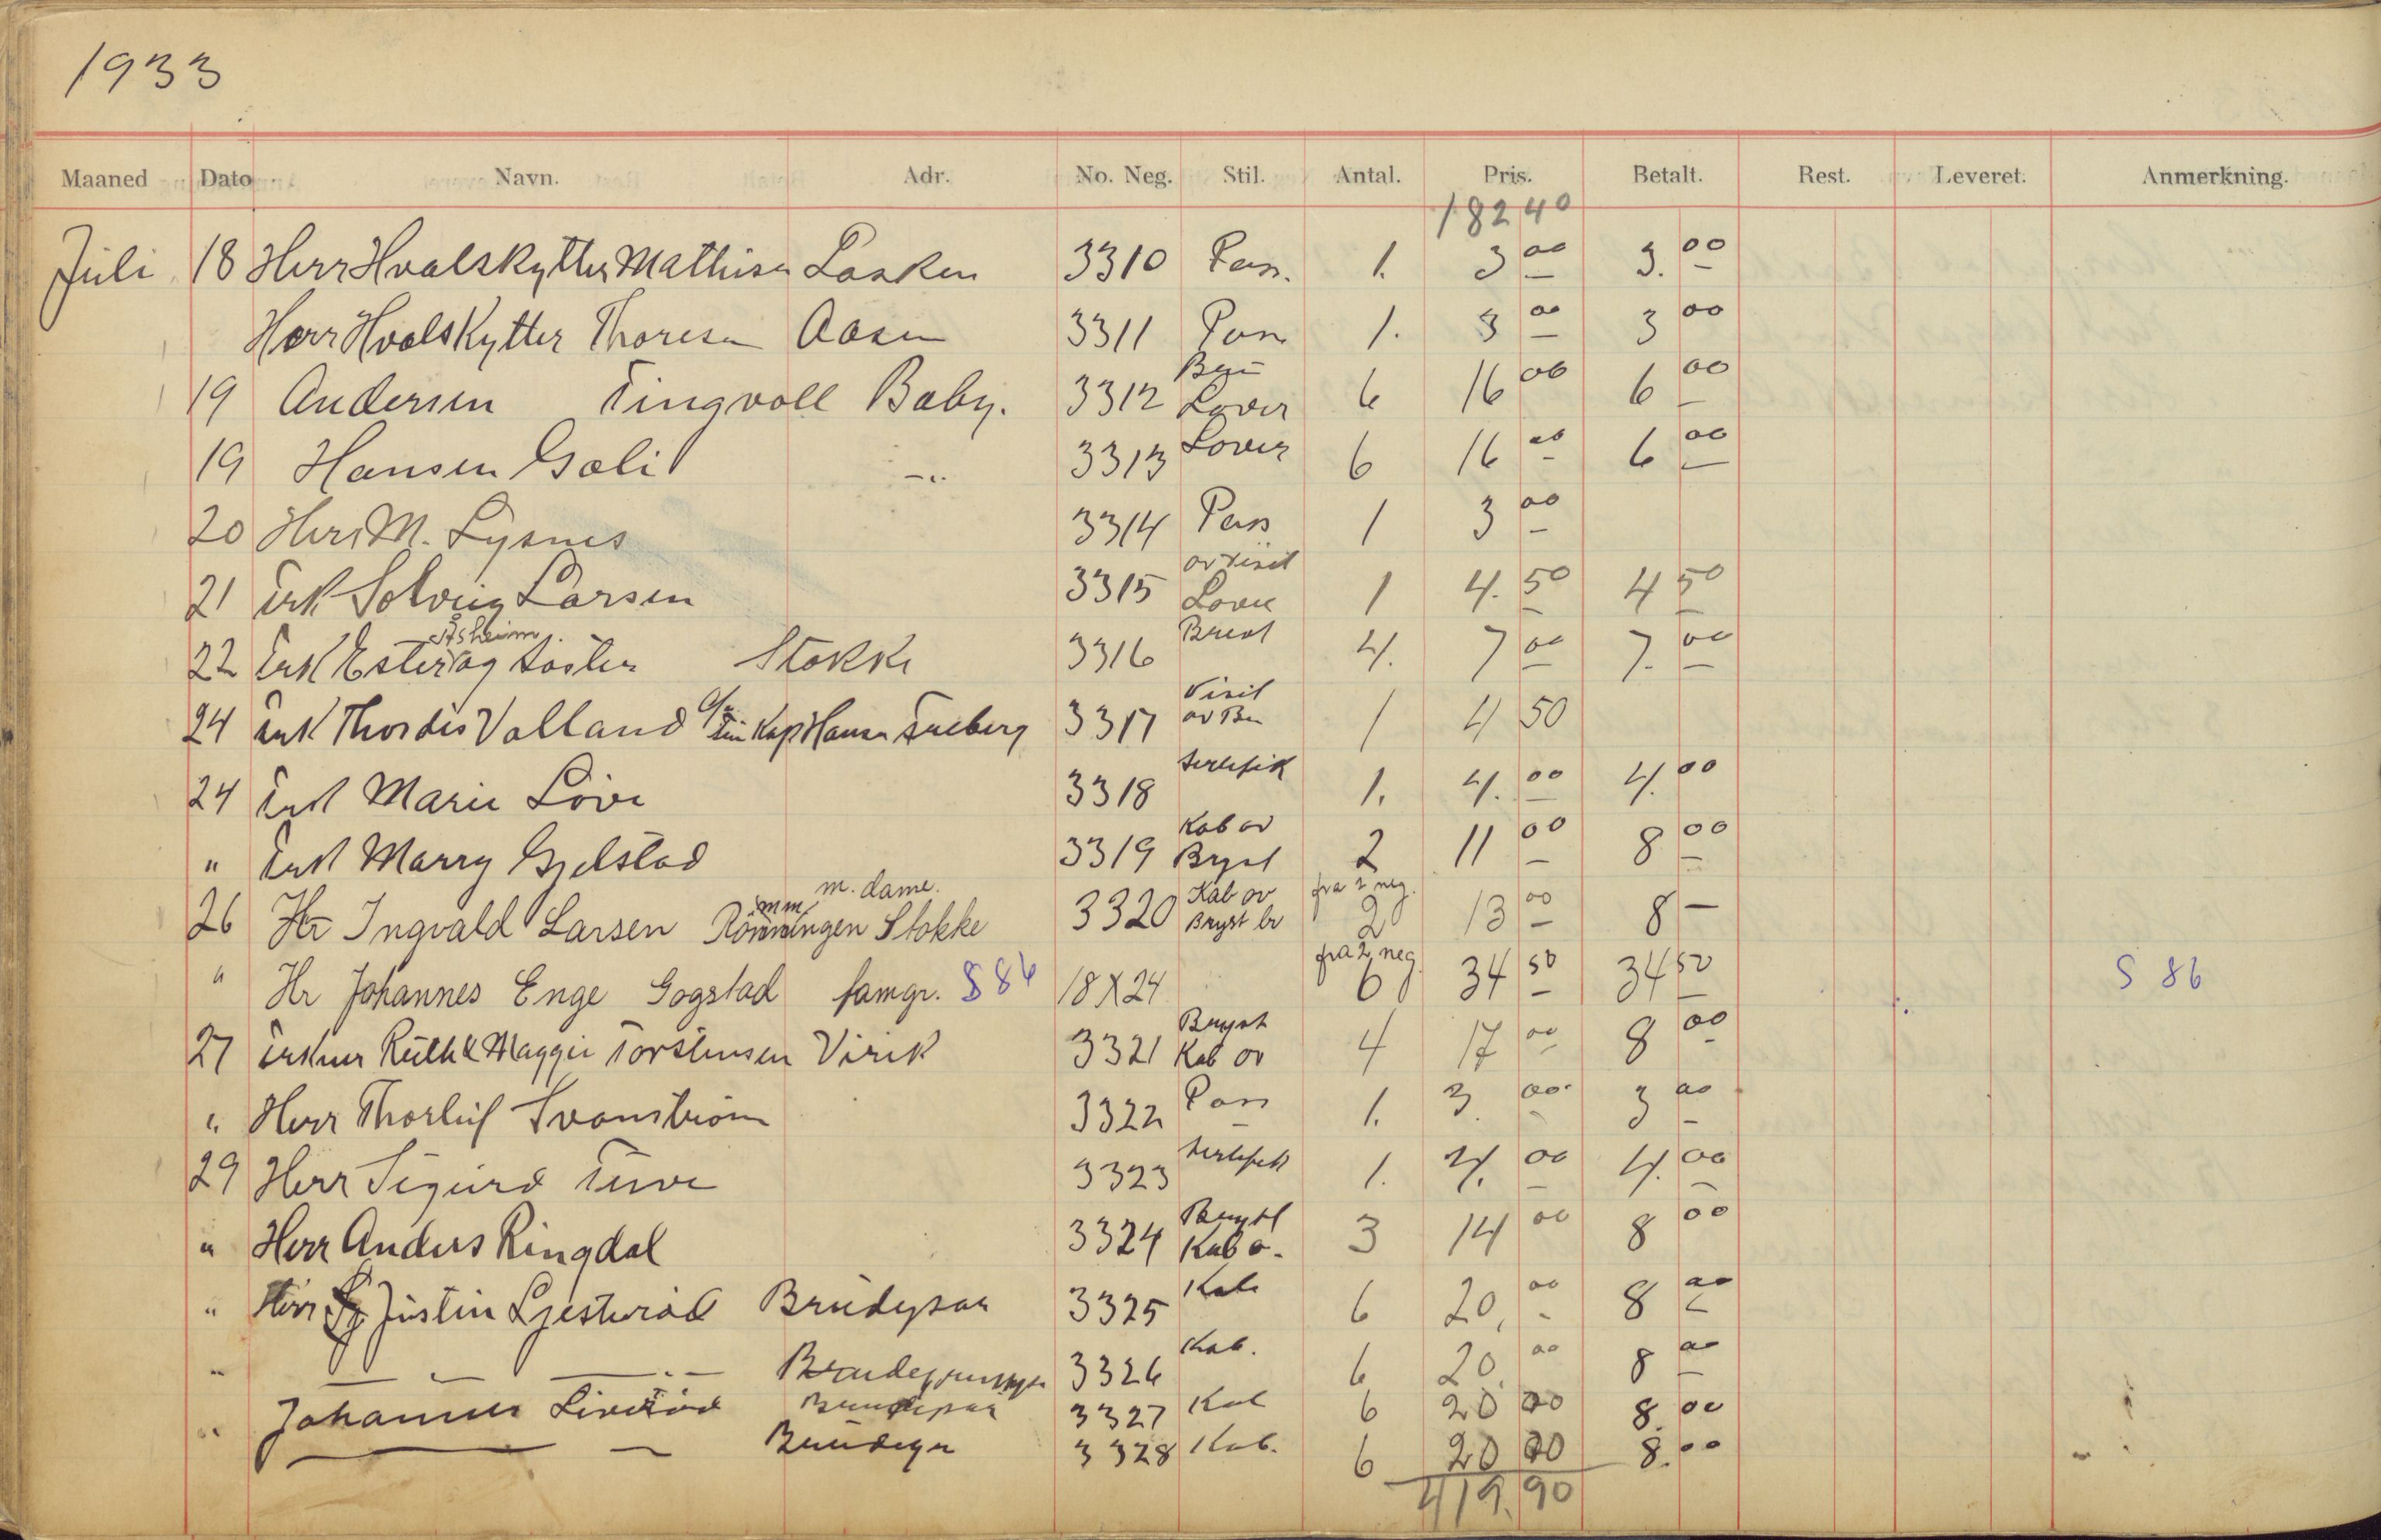 1933
Maaned Dato Navn. Adr. No. Neg. Stil. Antal. Pris. Betalt. Rest. Leveret. Anmerkning.
182 40
Juli 18 Herr Hvalskytter Mathisen Lasken 3310 Pass. 1. 3 00 3. 00
Herr Hvalskytter Thoresen Aasen 3311 Pass 1. 3 00 3 00
19 Andersen Tingvoll Baby. 3312 Lover 6 16 00 6 00
19 Hansen Gali -"- 3313 Lover 6 16 00 6 00
20 Herr M. Lysnes 3314 Pass 1 3 00
21 Frk Solveig Larsen 3315 ov visit 1 4. 50 4 50
Åsheim.
22 Frk Ester og søster Stokke 3316 Brevk 4. 7 00 7. 00
24 Frk Thordis Valland Kap Hansen Freberg 3317 Visit ov 1 4 50
24 Frk Marie Løve 3318 sertefik 1. 4. 00 4. 00
" Frk Marry Gjelstad 3319 Kab ov Bryst 2 11 00 8 00
m. dame.
26 Hr Ingvald Larsen Rönningen Stokke 3320 Kab ov Bryst br fra 2 neg. 2 13 00 8 —
" Hr Johannes Enge Gogstad famgr. S 86 18 X 24 fra 2 neg. 6 34 50 34 50 S 86
27 Frknr Ruth & Maggie Torstensen Virik 3321 Bryst Kab ov 4 17 00 8 00
" Herr Thorleif Svanstrøm 3322 Pass 1. 3. 00 3 00
29 Herr Sigurd 3323 sertefik 1. 4. 00 4. 00
" Herr Anders Ringdal 3324 Bryst Kab o. 3 14 00 8 00
" Herr Justin Ljesterød Brudepar 3325 Kab 6 20, 00 8 00
" — " — " — 3326 Kab. 6 20. 00 8 00
" Johannes Liverød Brudepar 3327 Kab 6 20 00 8. 00
3328 Kab. 6 20 00 8. 00
419. 90